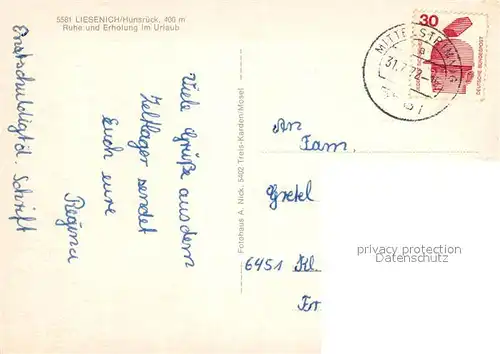 5581 LIESENICH/Hunsrück, 400 m
Ruhe und Erholung im Urlaub
Viele Grüße aus dem
Zeltlager sendet
Euch eure
Regina
Entschuldigt d. Schrift
Fotohaus A. Nick, 5402 Treis-Karden/Mosel
30
DEUTSCHE BUNDESPOST
31.7.72
An
Fam.
Gretel
6451 Kl.
privacy protection
www.ansichtskarten-center.de